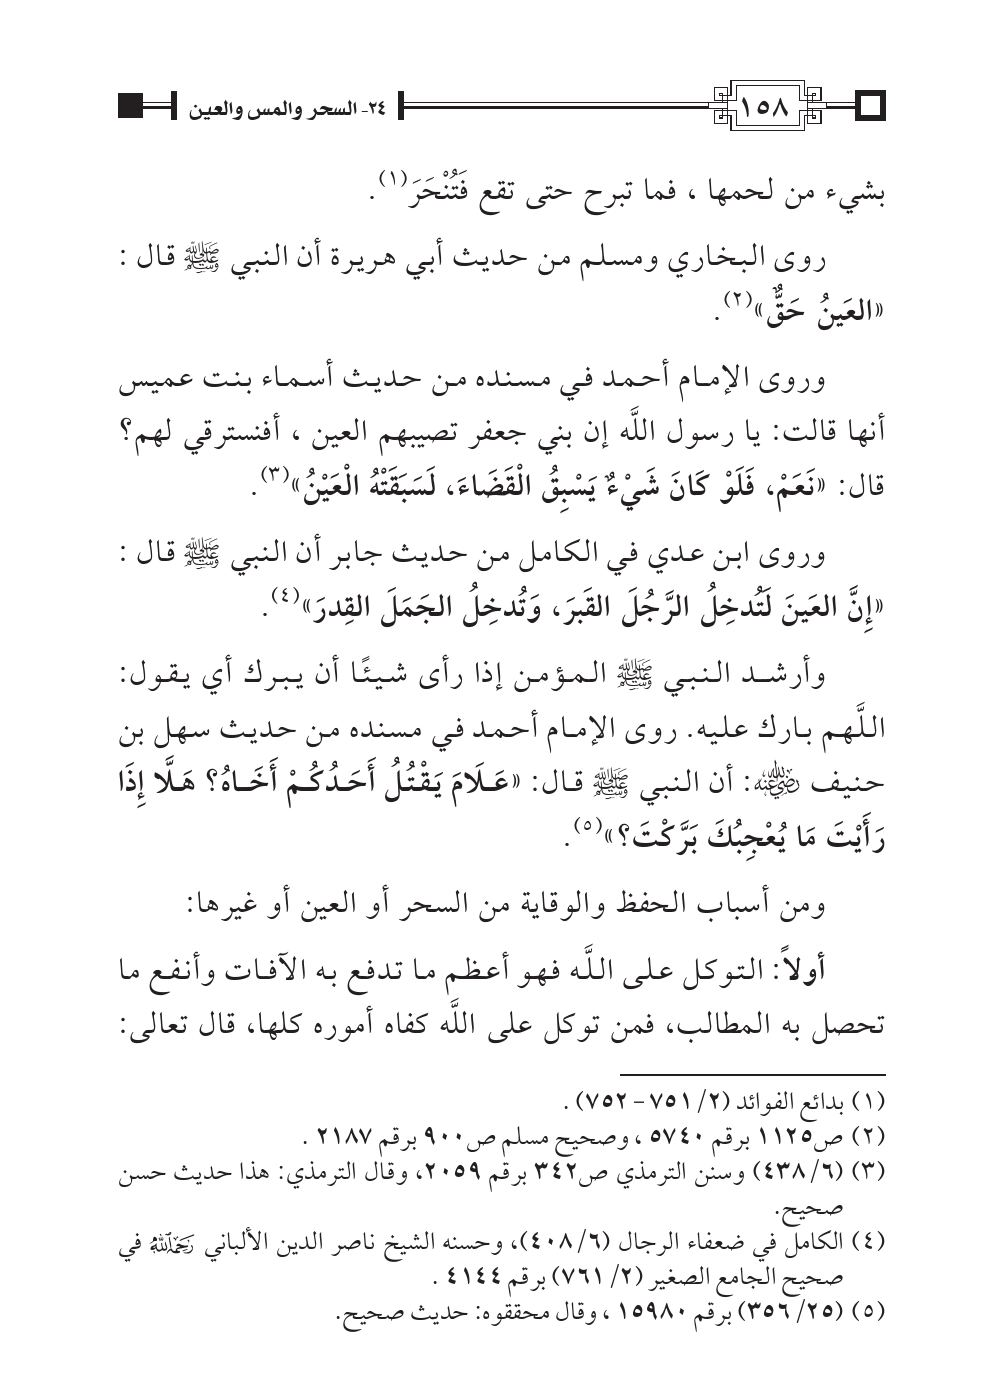 ١٥٨
٢٤- السحر والمس والعين
بشيء من لحمها ، فما تبرح حتى تقع فَتُنْحَرَ(١).
روى البخاري ومسلم من حديث أبي هريرة أن النبي ﷺ قال :
«العَينُ حَقٌّ»(٢).
وروى الإمام أحمد في مسنده من حديث أسماء بنت عميس
أنها قالت: يا رسول اللَّه إن بني جعفر تصيبهم العين ، أفنسترقي لهم؟
قال: «نَعَمْ، فَلَوْ كَانَ شَيْءٌ يَسْبِقُ الْقَضَاءَ، لَسَبَقَتْهُ الْعَيْنُ»(٣).
وروى ابن عدي في الكامل من حديث جابر أن النبي ﷺ قال :
«إِنَّ العَينَ لَتُدخِلُ الرَّجُلَ القَبرَ، وَتُدخِلُ الجَمَلَ القِدرَ»(٤).
وأرشد النبي ﷺ المؤمن إذا رأى شيئًا أن يبرك أي يقول:
اللَّهم بارك عليه. روى الإمام أحمد في مسنده من حديث سهل بن
حنيف رضي الله عنه: أن النبي ﷺ قال: «عَلَامَ يَقْتُلُ أَحَدُكُمْ أَخَاهُ؟ هَلَّا إِذَا
رَأَيْتَ مَا يُعْجِبُكَ بَرَّكْتَ؟»(٥).
ومن أسباب الحفظ والوقاية من السحر أو العين أو غيرها:
أولاً: التوكل على اللَّه فهو أعظم ما تدفع به الآفات وأنفع ما
تحصل به المطالب، فمن توكل على اللَّه كفاه أموره كلها، قال تعالى:
(١) بدائع الفوائد (٢/ ٧٥١ – ٧٥٢) .
(٢) ص١١٢٥ برقم ٥٧٤٠ ، وصحيح مسلم ص٩٠٠ برقم ٢١٨٧ .
(٣) (٦/ ٤٣٨) وسنن الترمذي ص٣٤٢ برقم ٢٠٥٩، وقال الترمذي: هذا حديث حسن
صحيح.
(٤) الكامل في ضعفاء الرجال (٦/ ٤٠٨)، وحسنه الشيخ ناصر الدين الألباني رحمه الله في
صحيح الجامع الصغير (٢/ ٧٦١) برقم ٤١٤٤ .
(٥) (٢٥/ ٣٥٦) برقم ١٥٩٨٠ ، وقال محققوه: حديث صحيح.